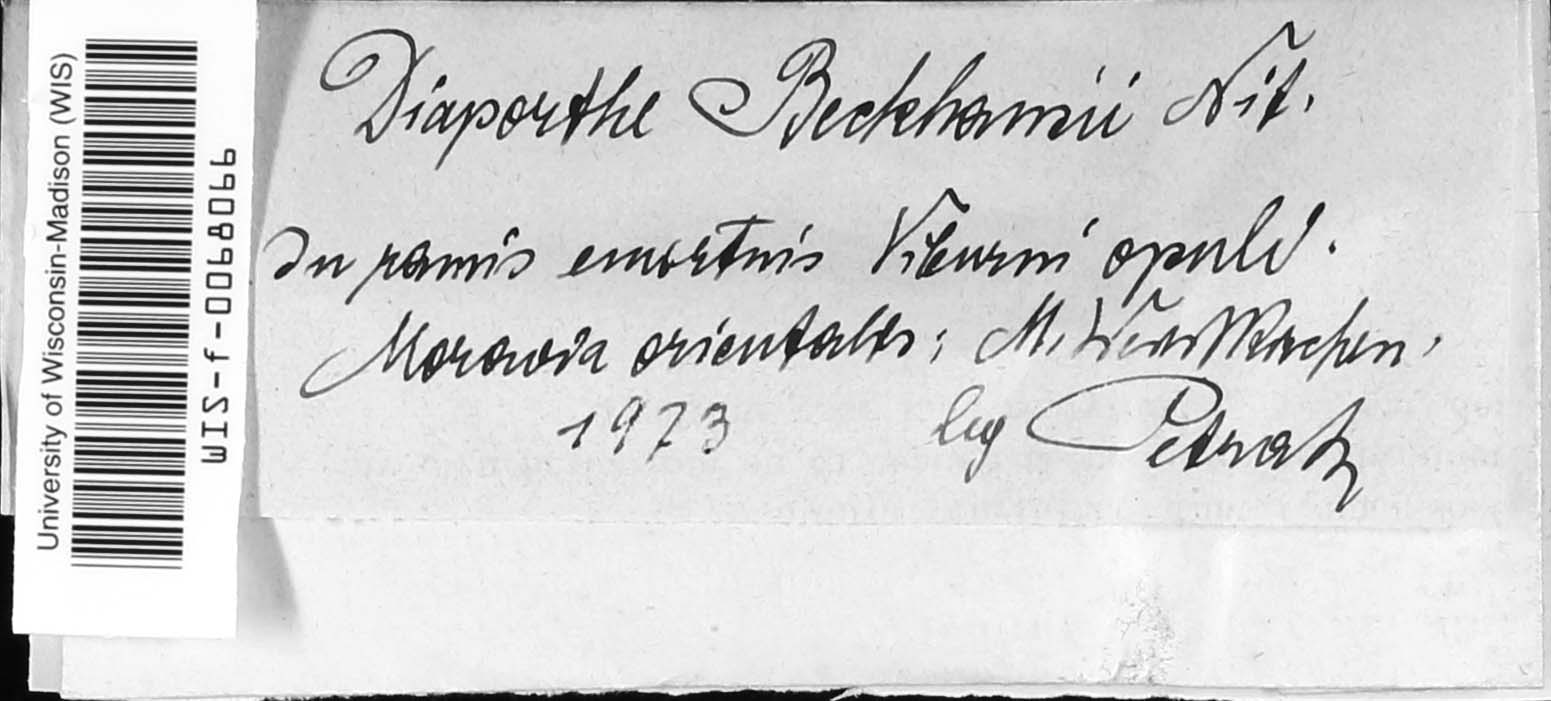 University of Wisconsin-Madison (WIS)
WIS-f-0068066
Diaporthe Beckhamii Nit.
In ramis emortuis Viburni opuli.
Moravia orientalis; M. Weisskirchen,
1923 leg Petrak